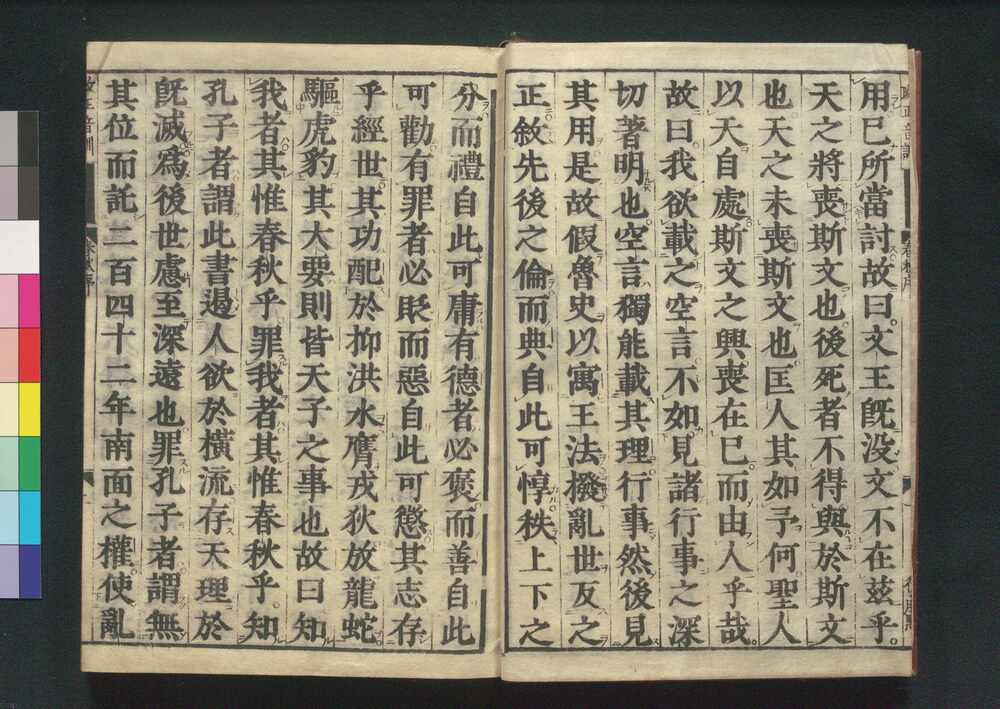 用已所當討故曰文王旣没文不在茲乎
天之將喪斯文也後死者不得與於斯文
也天之未喪斯文也匡人其如予何聖人
以天自處斯文之興喪在已而由人乎哉
故曰我欲載之空言不如見諸行事之深
切著明也空言獨能載其理行事然後見
其用是故假魯史以寓王法撥亂世反之
正敘先後之倫而典自此可惇秩上下之
分而禮自此可庸有德者必褒而善自此
可勸有罪者必貶而惡自此可懲其志存
乎經世其功配於抑洪水膺戎狄放龍蛇
驅虎豹其大要則皆天子之事也故曰知
我者其惟春秋乎罪我者其惟春秋乎知
孔子者謂此書遏人欲於橫流存天理於
旣滅爲後世慮至深遠也罪孔子者謂無
其位而託二百四十二年南面之權使亂